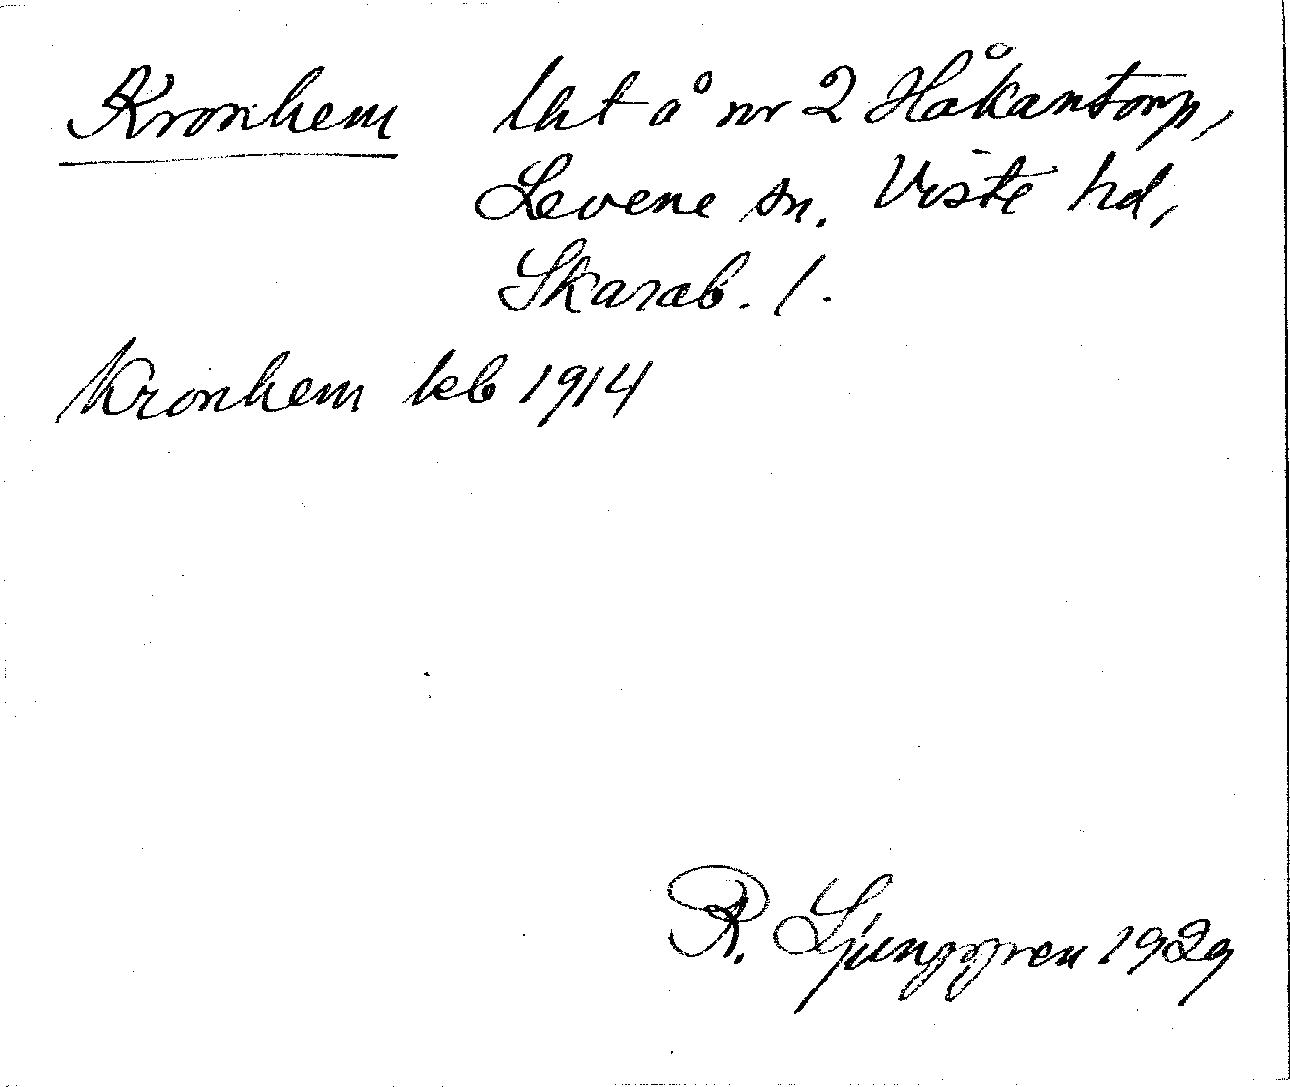 Kronhem lht å nr 2 Håkantorp,
Levene sn. Viste hd,
Skarab. l.
Kronhem kb 1914
R. Ljunggren 1929